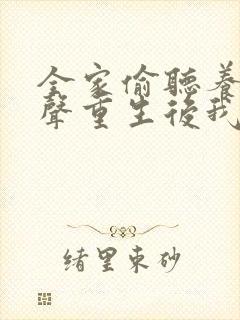 全家偷聽養
聲重生後我
緒里東砂